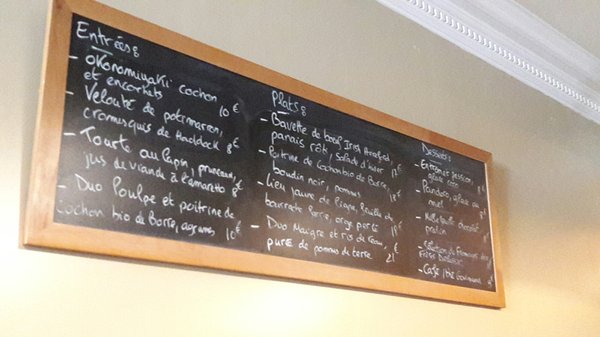 Entrées :
- okonomiyakii cochon
et encornets 10 €
- Velouté de potimarron,
cromusquis de Haddock 8 €
- Tourte au lapin, pruneaux,
jus de viande à l'amaretto 9 €
- Duo Poulpe et poitrine de
cochon bio de Borre, agrumes 10 €
Plats :
- Bavette de bœuf Irish Hereford,
panais rôti / Salade d'hiver
- Poitrine de Cochon bio de Borre,
boudin noir, pommes
- Lieu jaune de Ligne, Feuille de
bourrate, orge perlé
- Duo Maigre et ris de veau,
purée de pommes de terre 21 €
Desserts :
glace coco
miel
- Millefeuille chocolat
pralin
- Sélection de Fromages des
- Café / thé Gourmand